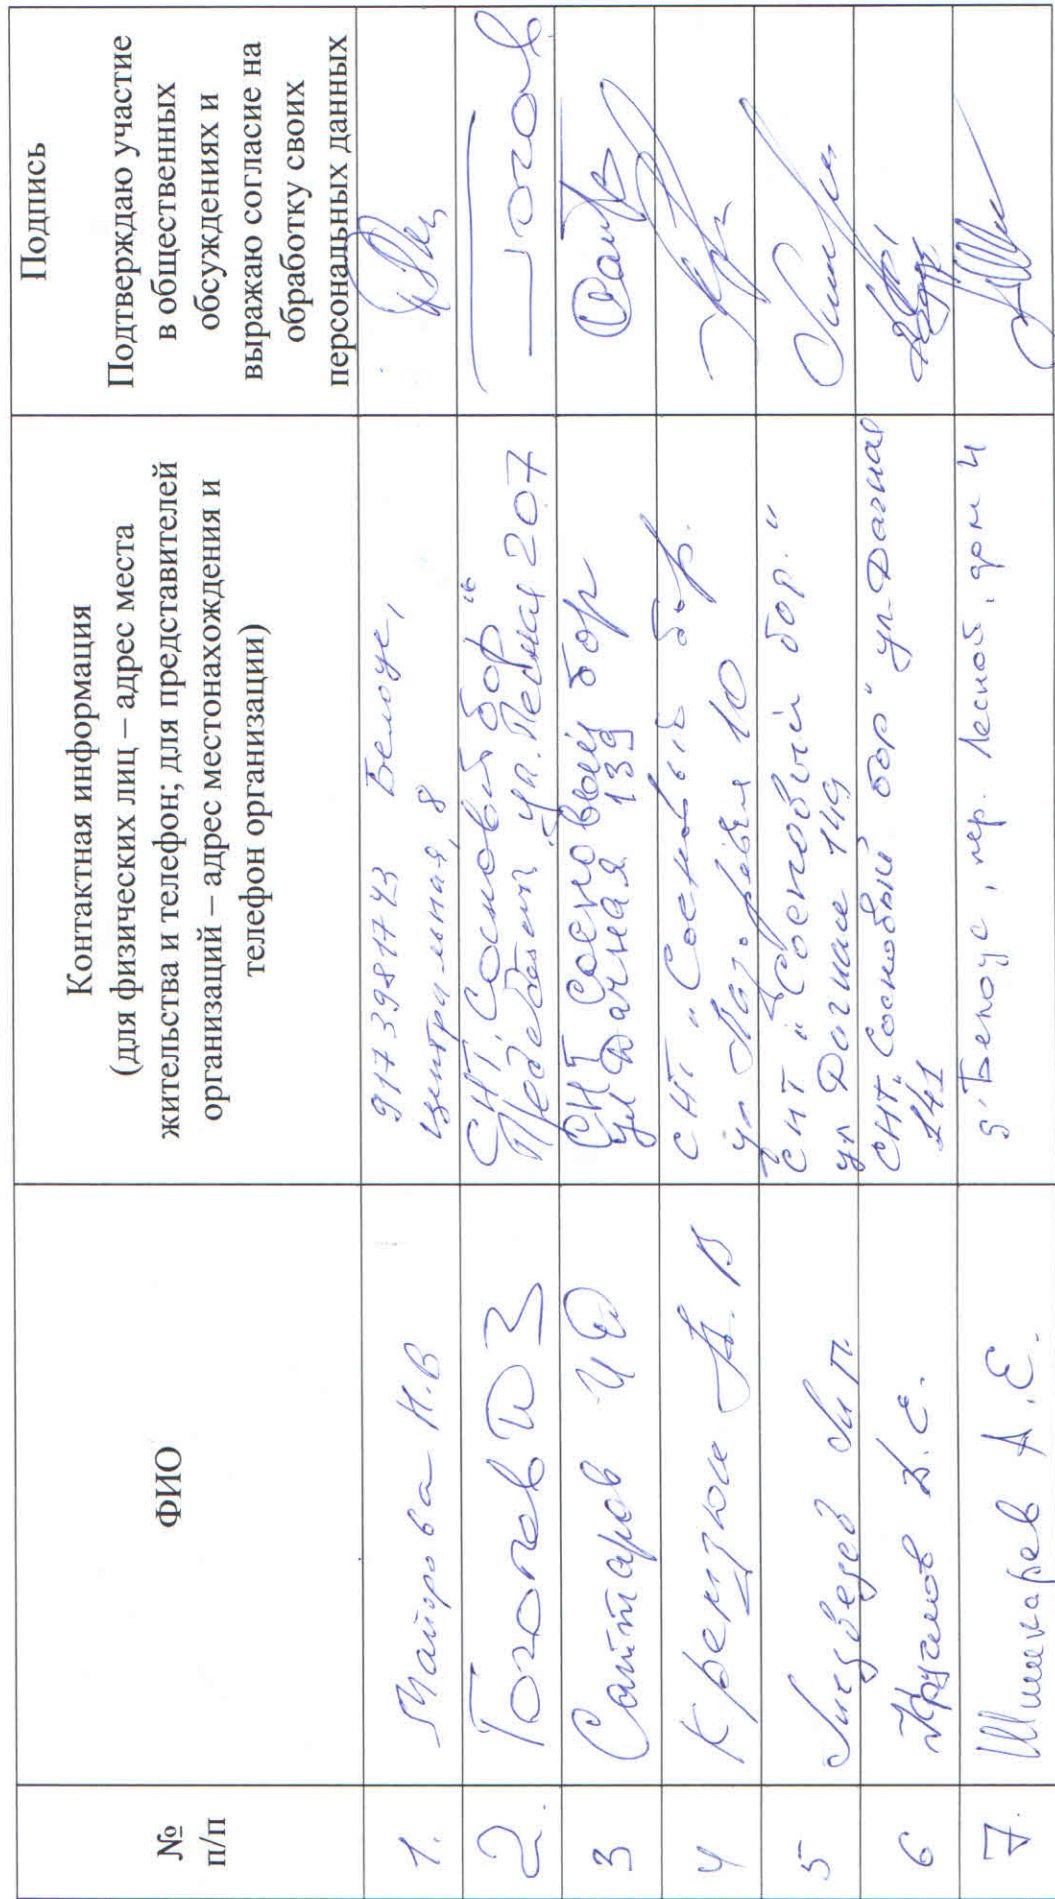 №
п/п
ФИО
Контактная информация
(для физических лиц – адрес места
жительства и телефон; для представителей
организаций – адрес местонахождения и
телефон организации)
Подпись
Подтверждаю участие
в общественных
обсуждениях и
выражаю согласие на
обработку своих
персональных данных
1.
Майорова Н.В
9173981743 Белоус,
центральная, 8
2.
СНТ "Сосновый бор"
ул. Лесная 207
Гогов
3
Саттаров И Ф
СНТ Сосновый бор
ул Дачная 139
4
СНТ "Сосновый бор.
ул 10
5
СНТ "Сосновый бор."
ул Дачная 149
6
СНТ "Сосновый бор" ул-Дачная
141
7.
Шишкарев А.Е.
Белоус, пер. Лесной, дом 4